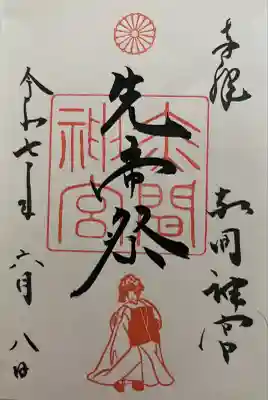 奉拝
赤間神宮
先帝祭
赤間神宮
令和七年
六月八日